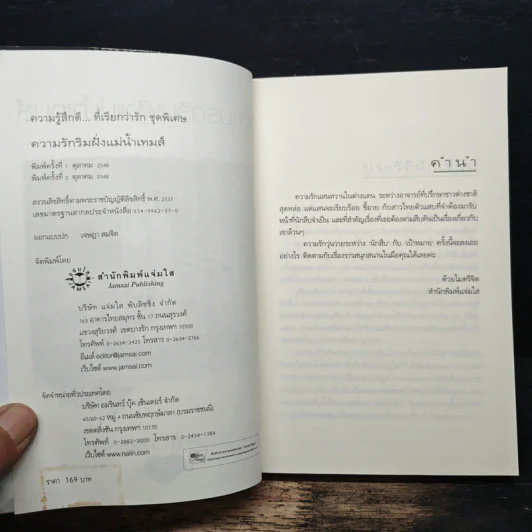 ความรู้สึกดี... ที่เรียกว่ารัก ชุดพิเศษ
ความรักริมฝั่งแม่น้ำเทมส์
พิมพ์ครั้งที่ 1 ตุลาคม 2548
พิมพ์ครั้งที่ 2 ตุลาคม 2548
สงวนลิขสิทธิ์ตามพระราชบัญญัติลิขสิทธิ์ พ.ศ. 2537
เลขมาตรฐานสากลประจำหนังสือ 974-9962-37-6
ออกแบบปก เจษฎา สมจิต
จัดพิมพ์โดย
สำนักพิมพ์แจ่มใส
Jamsai Publishing
บริษัท แจ่มใส พับลิชชิ่ง จำกัด
163 อาคารไทยสมุทร ชั้น 17 ถนนสุรวงศ์
แขวงสุริยวงศ์ เขตบางรัก กรุงเทพฯ 10500
โทรศัพท์ 0-2634-2425 โทรสาร 0-2634-2766
อีเมล์ editor@jamsai.com
เว็บไซต์ www.jamsai.com
จัดจำหน่ายทั่วประเทศโดย
บริษัท อมรินทร์ บุ๊ค เซ็นเตอร์ จำกัด
65/60-62 หมู่ 4 ถนนชัยพฤกษ์มาลา (บรมราชชนนี)
เขตตลิ่งชัน กรุงเทพฯ 10170
โทรศัพท์ 0-2882-2000 โทรสาร 0-2434-1384
เว็บไซต์ www.naiin.com
ราคา 169 บาท
คำนำ
ความรักแสนหวานในต่างแดน ระหว่างอาจารย์ที่ปรึกษาชาวต่างชาติ
สุดหล่อ แต่แสนจะเรียบร้อย ขี้อาย กับสาวไทยตัวแสบที่จำต้องมารับ
หน้าที่นักสืบจำเป็น และที่สำคัญเรื่องที่เธอต้องตามสืบดันเป็นเรื่องเกี่ยวกับ
เขาล้วนๆ
ความรักวุ่นวายระหว่าง 'นักสืบ' กับ 'เป้าหมาย' ครั้งนี้จะลงเอย
อย่างไร ติดตามกับเรื่องราวสนุกสนานในมือคุณได้เลยค่ะ
ด้วยไมตรีจิต
สำนักพิมพ์แจ่มใส